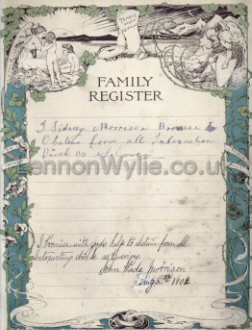 FAMILY
REGISTER
I Sidney Morrison Promise to
Obstain from all Intoxication
Drink as
LennonWylie.co.uk
I Promise with gods help to obstain from all
intoxicating drink as
John Wade Morrison
1902